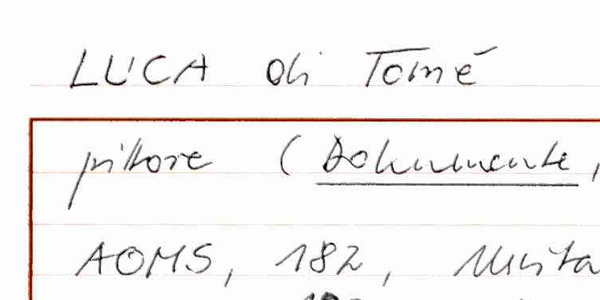 LUCA di Tomé
pittore (Dokumente,
AOMS, 182,